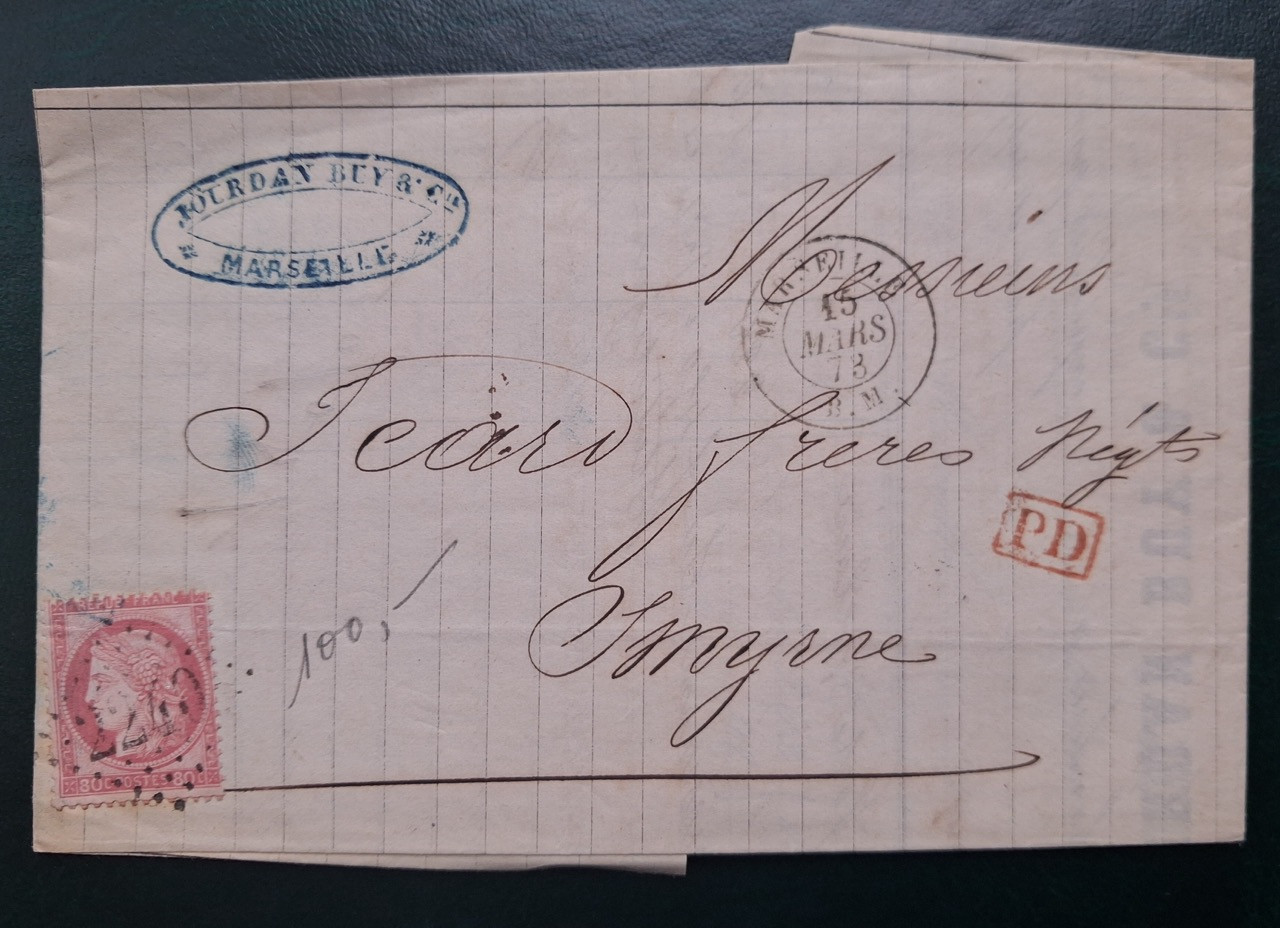 JOURDAN BUY & Cie
MARSEILLE
Messieurs
MARSEILLE
15
MARS
73
B.M.
Icard freres Négts
PD
Smyrne
100,-
2240
80C POSTES 80C